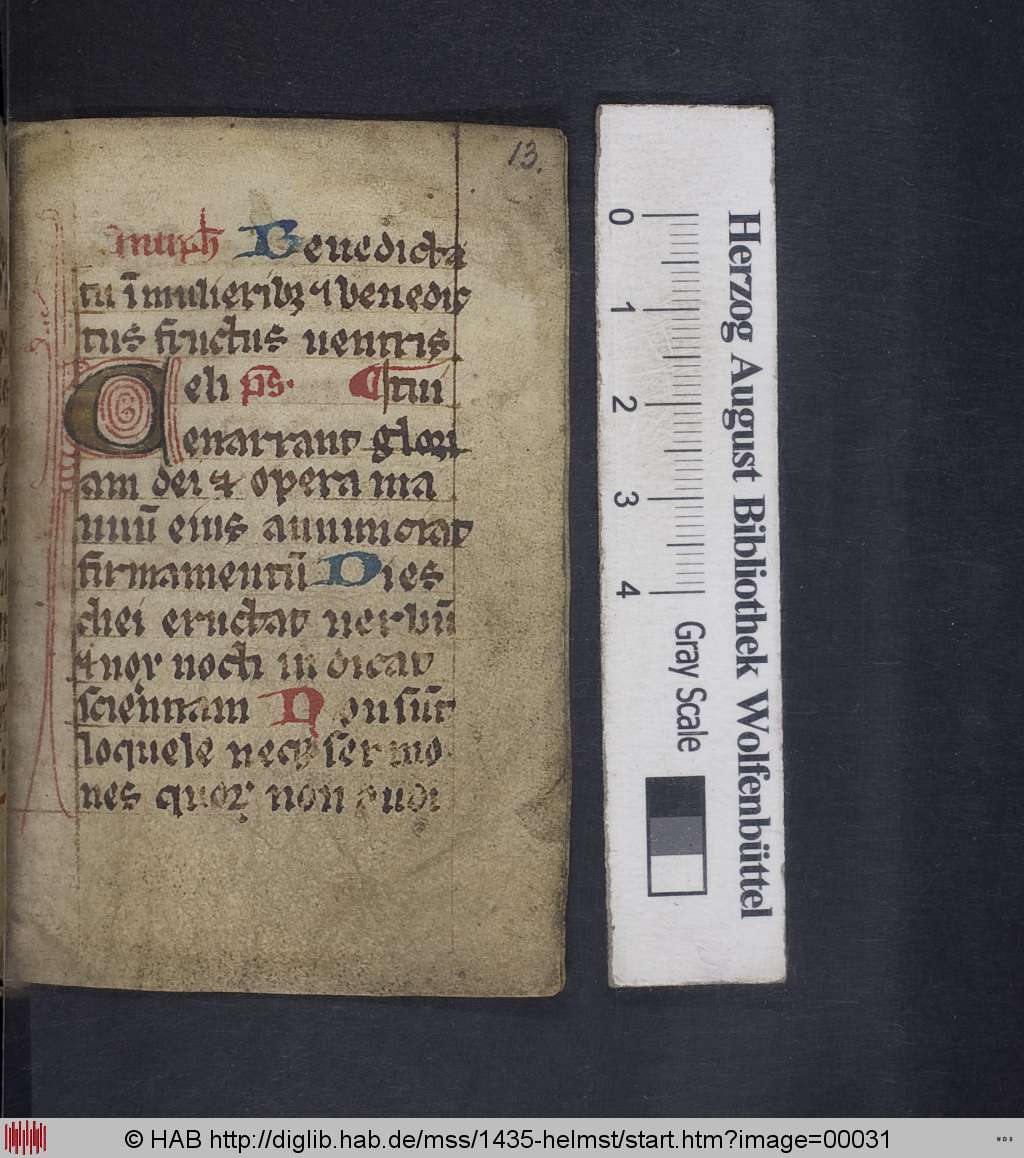 13.
Benedicta
tu ī mulieribꝫ ⁊ benedic
tus fructus uentris
Celi ps̄· tui
enarrant glori
am dei ⁊ opera ma
nuū eius annunciat
firmamentū Dies
diei eructat uerbū
⁊ nox nocti indicat
scientiam Non sūt
loquele necꝫ sermo
nes quoꝝ non audi
Herzog August Bibliothek Wolfenbüttel
0 1 2 3 4
Gray Scale
© HAB http://diglib.hab.de/mss/1435-helmst/start.htm?image=00031